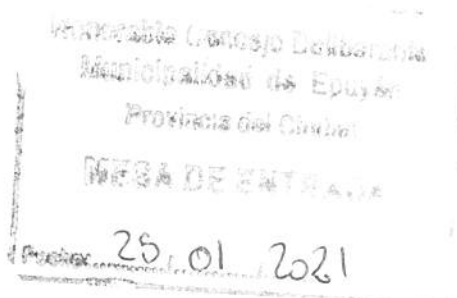 Honorable Concejo Deliberante
Municipalidad de Epuyén
Provincia del Chubut
MESA DE ENTRADA
Fecha: 25 / 01 / 2021